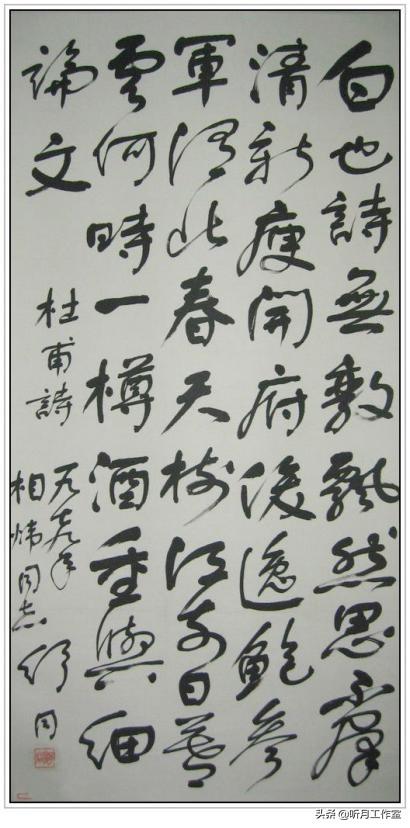 白也詩無敵飄然思不羣
清新庾開府俊逸鮑參
軍渭北春天樹江东日暮
雲何時一樽酒重與細
論文
杜甫詩
一九七九年
相炜同志 舒同
头条 @听月工作室